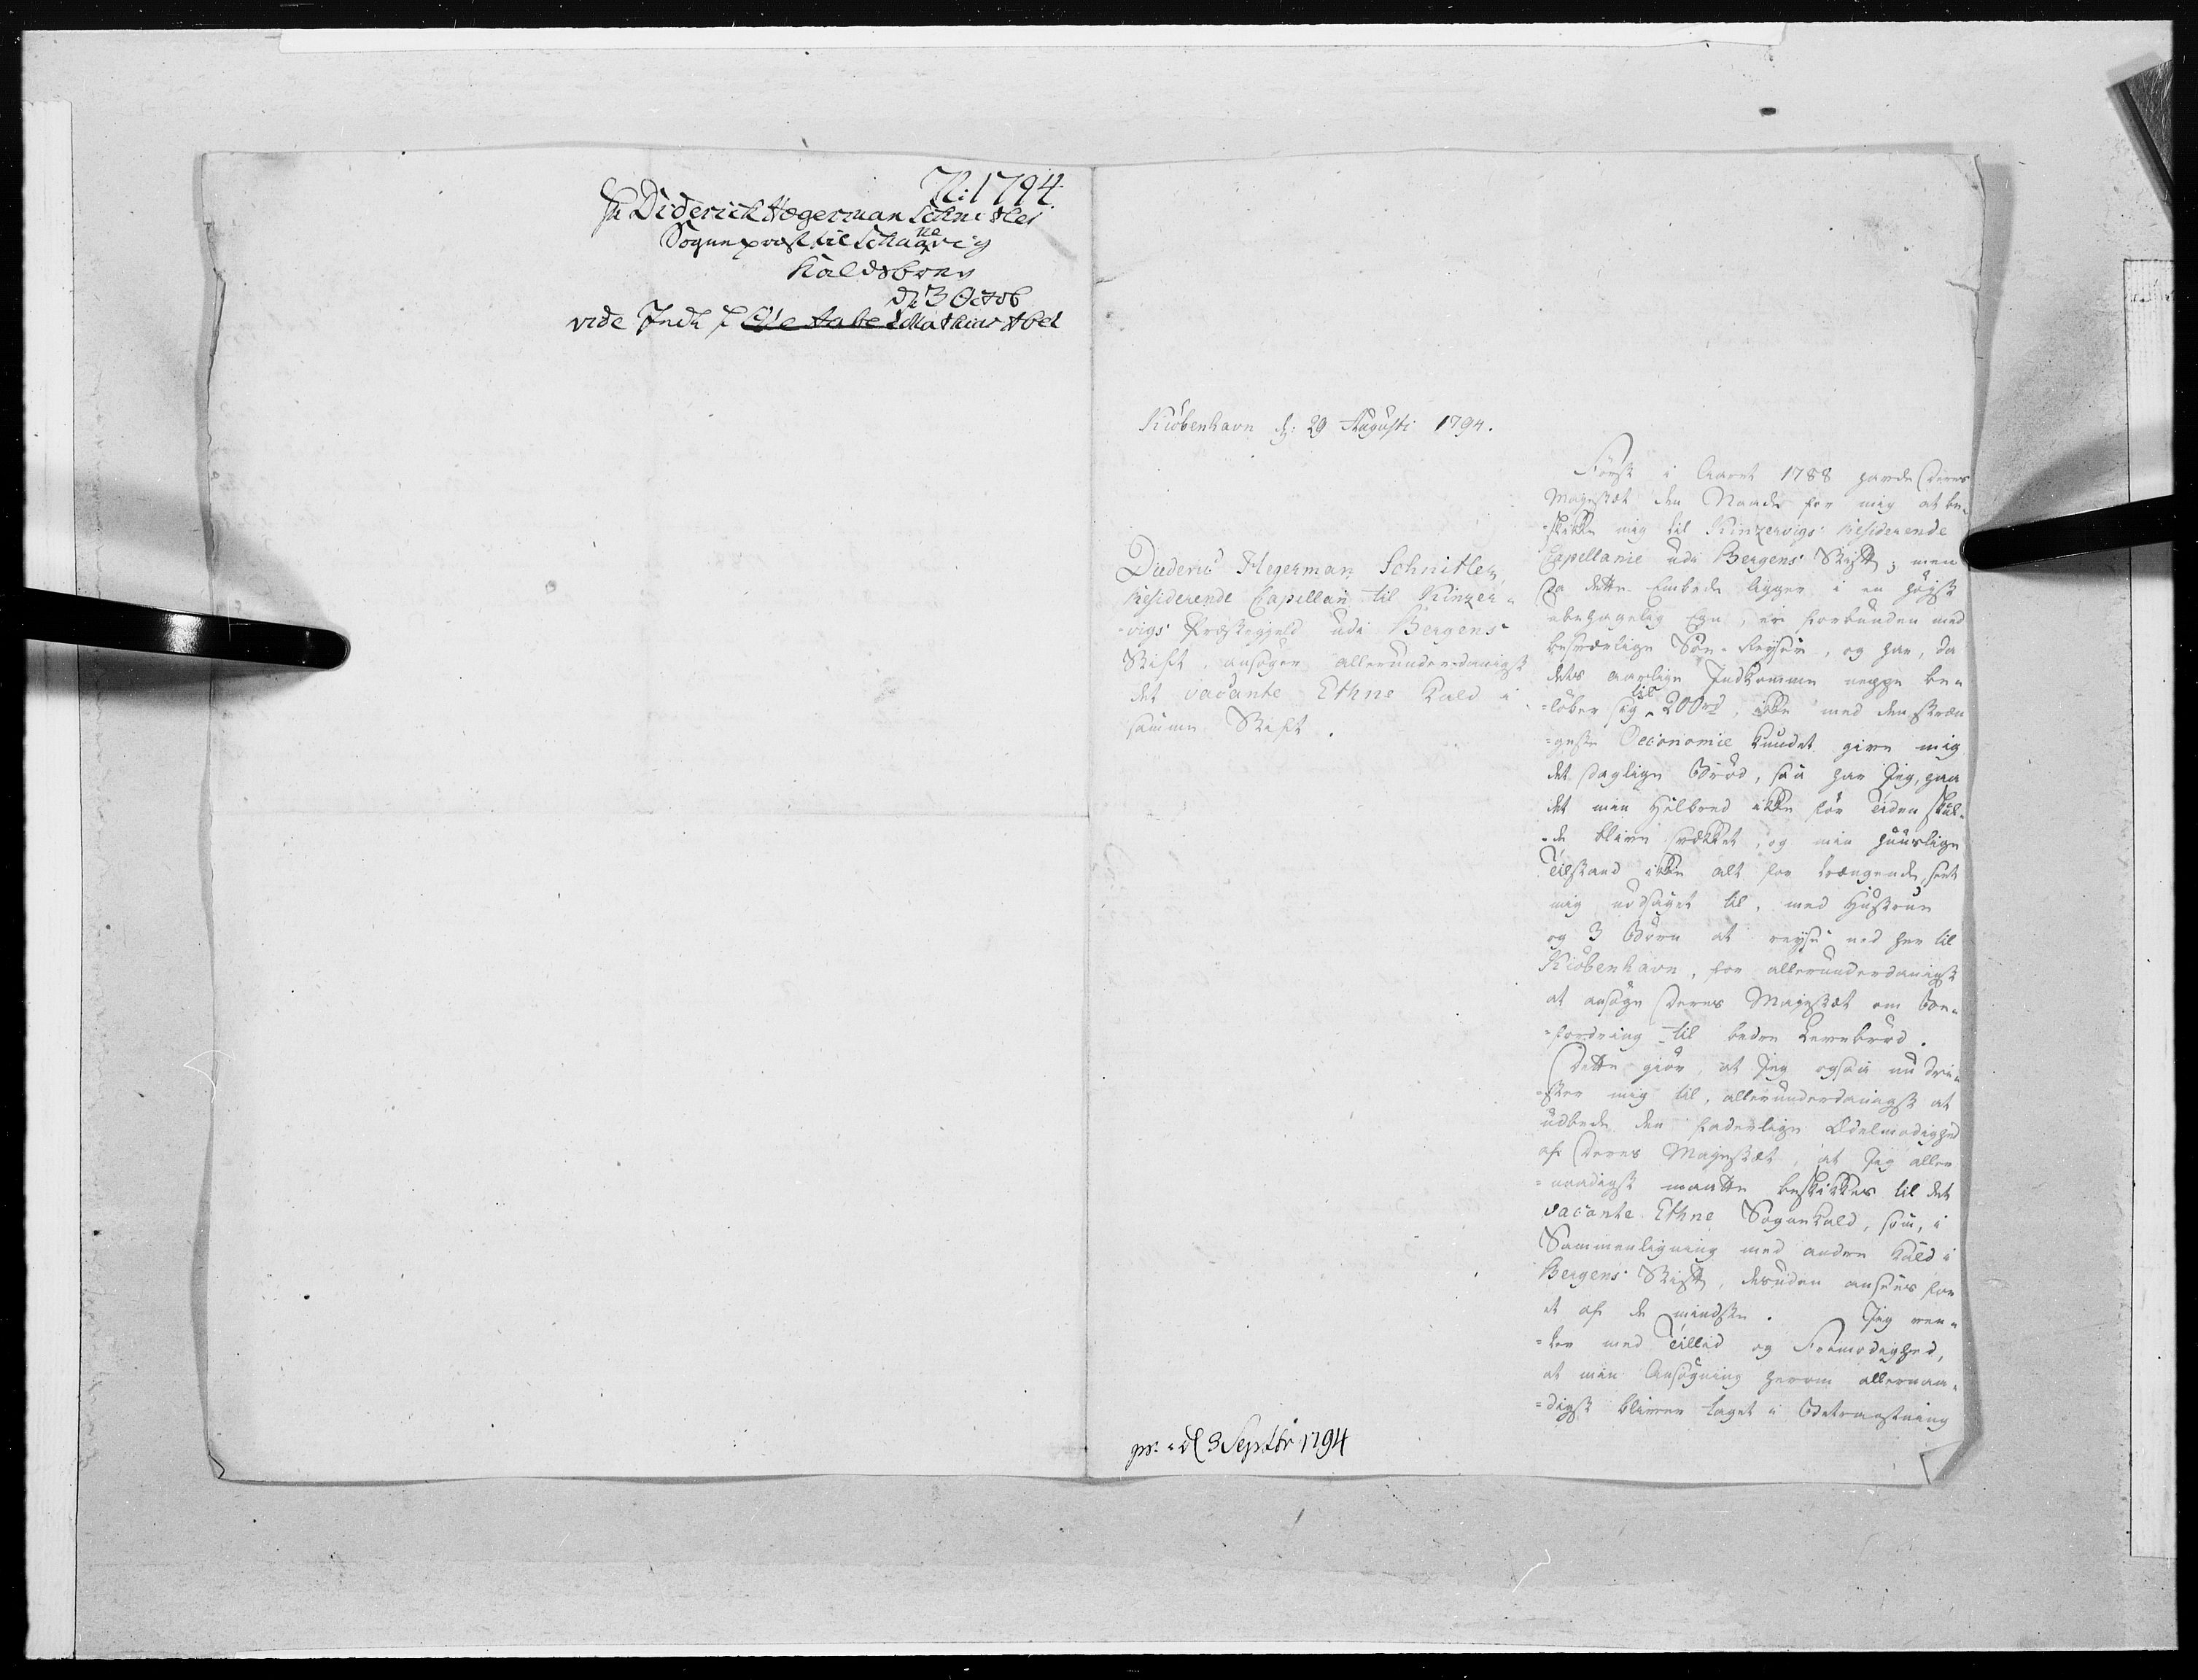 N: 1794.
Hr Diderich Hegerman Schnitler
Sognepræst til Schaanevig
Kaldsbrev
d. 3 Octob
vide Indl f Ole Aabel Mathias Abel
Kiöbenhavn d: 29 Augusti 1794.
Diideric Hegerman Schnitler,
Residerende Capellan til Kinzer-
-vigs Præstegjeld udi Bergens
Stift, ansöger allerunderdanigst
det vacante Ethne Kald i
samme Stift.
Först i Aaret 1788 havde Deres
Majestæt den Naade for mig at be-
-skikke mig til Kinzervigs Residerende
Capellanie udi Bergens Stift; men
da dette Embede ligger i en högst
ubehagelig Egn, er forbunden med
besværlige Söe-Reyser, og har, da
dets aarlige Indkomme neppe be-
-löber sig til 200rd, ikke med den stræn
-geste Oeconomie kundet give mig
det daglige Bröd, saa har jeg, paa
det min Hilbred ikke för Tiden skul-
-de blive svækket, og min huuslige
Tilstand ikke alt for trængende, seet
mig nödsaget til, med Hustrue
og 3 Börn at reyse ned her til
Kiöbenhavn, for allerunderdanigst
at ansöge Deres Majestæt om Be-
-fordring til bedre Levebröd.
Dette giör, at jeg ogsaa nu dri-
-ster mig til, allerunderdanigst at
udbede den faderlige Ædelmodighed
af Deres Majestæt, at jeg aller
-naadigst maatte beskikkes til det
vacante Ethne Sognekald, som, i
Sammenligning med andre Kald i
Bergens Stift, desuden ansees for
et af de mindste. Jeg ven-
-ter med Tillid og Frimodighed,
at min Ansögning herom allernaa-
-digst bliver taget i Betragtning
pr: d 3 Septbr 1794